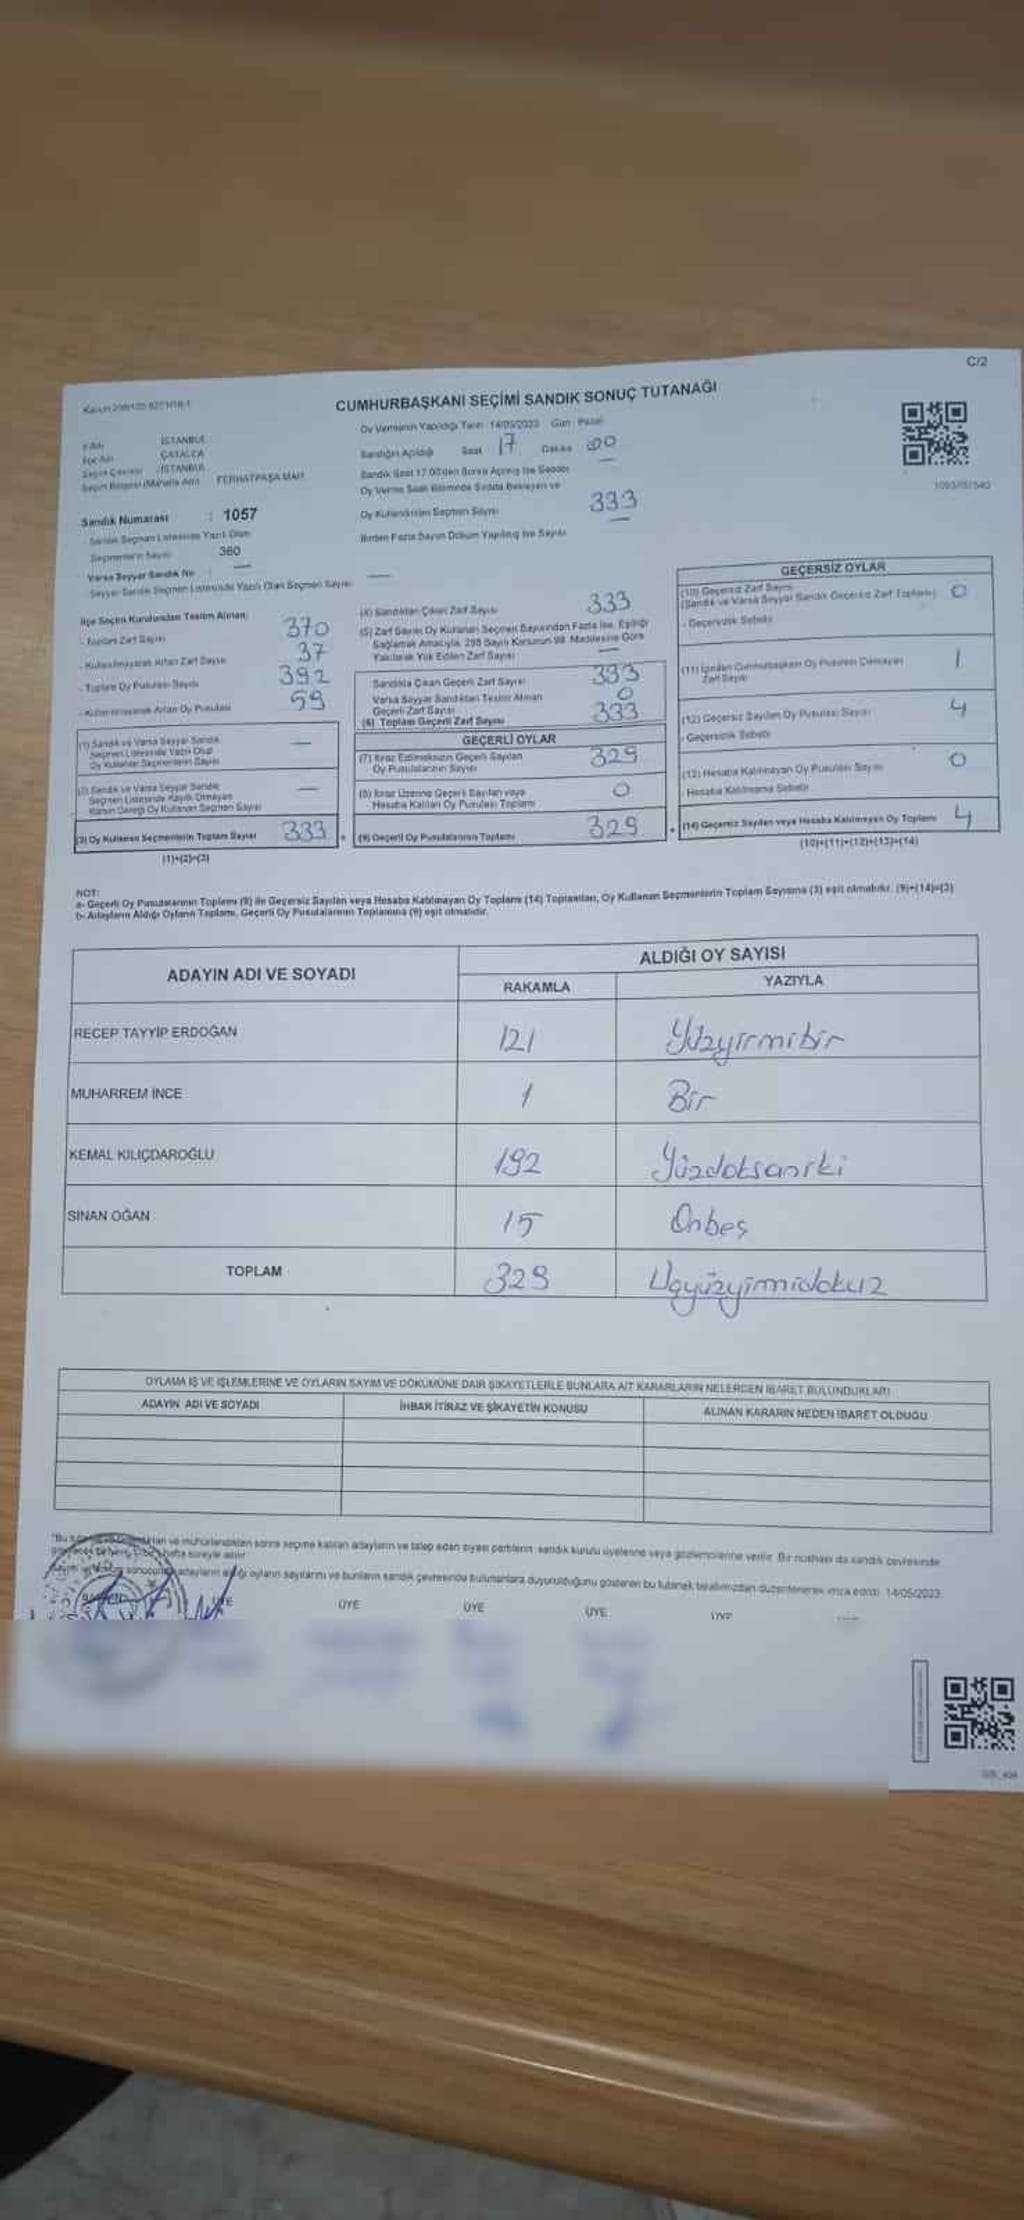 C/2
CUMHURBAŞKANI SEÇİMİ SANDIK SONUÇ TUTANAĞI
Oy Vermenin Yapıldığı Tarih 14/05/2023 Gün Pazar
İSTANBUL
ÇATALCA
İSTANBUL
FERHATPAŞA MAH
Sandığın Açıldığı Saat 17 Dakika 00
Oy Kullandırılan Seçmen Sayısı 333
Sandık Numarası : 1057
Sandık Seçmen Listesinde Yazılı Olan
Seçmenlerin Sayısı 360
Varsa Seyyar Sandık No
Seyyar Sandık Seçmen Listesinde Yazılı Olan Seçmen Sayısı
İlçe Seçim Kurulundan Teslim Alınan;
- Toplam Zarf Sayısı 370
- Kullanılmayarak Artan Zarf Sayısı 37
- Toplam Oy Pusulası Sayısı 392
- Kullanılmayarak Artan Oy Pusulası 59
(1) Sandık ve Varsa Seyyar Sandık
Seçmen Listesinde Yazılı Olup
Oy Kullanan Seçmenlerin Sayısı
(3) Oy Kullanan Seçmenlerin Toplam Sayısı 333
(1)+(2)=(3)
(4) Sandıktan Çıkan Zarf Sayısı 333
Sandıkta Çıkan Geçerli Zarf Sayısı 333
Varsa Seyyar Sandıktan Teslim Alınan
Geçerli Zarf Sayısı 0
(6) Toplam Geçerli Zarf Sayısı 333
GEÇERLİ OYLAR
(7) İtiraz Edilmeksizin Geçerli Sayılan
Oy Pusulalarının Sayısı 329
(8) İtiraz Üzerine Geçerli Sayılan veya
Hesaba Katılan Oy Pusulası Toplamı 0
(9) Geçerli Oy Pusulalarının Toplamı 329
GEÇERSİZ OYLAR
(10) Geçersiz Zarf Sayısı
(Sandık ve Varsa Seyyar Sandık Geçersiz Zarf Toplamı) 0
- Geçersizlik Sebebi
(11) İçinden Cumhurbaşkanı Oy Pusulası Çıkmayan
Zarf Sayısı 1
(12) Geçersiz Sayılan Oy Pusulası Sayısı 4
- Geçersizlik Sebebi
(13) Hesaba Katılmayan Oy Pusulası Sayısı 0
- Hesaba Katılmama Sebebi
(14) Geçersiz Sayılan veya Hesaba Katılmayan Oy Toplamı 4
(10)+(11)+(12)+(13)=(14)
NOT:
a- Geçerli Oy Pusulalarının Toplamı (9) ile Geçersiz Sayılan veya Hesaba Katılmayan Oy Toplamı (14) Toplamları, Oy Kullanan Seçmenlerin Toplam Sayısına (3) eşit olmalıdır. (9)+(14)=(3)
b- Adayların Aldığı Oyların Toplamı, Geçerli Oy Pusulalarının Toplamına (9) eşit olmalıdır.
ADAYIN ADI VE SOYADI
ALDIĞI OY SAYISI
RAKAMLA YAZIYLA
RECEP TAYYİP ERDOĞAN 121 Yüzyirmibir
MUHARREM İNCE 1 Bir
KEMAL KILIÇDAROĞLU 192 Yüzdoksaniki
SİNAN OĞAN 15 Onbeş
TOPLAM 329 Üçyüzyirmidokuz
OYLAMA İŞ VE İŞLEMLERİNE VE OYLARIN SAYIM VE DÖKÜMÜNE DAİR ŞİKAYETLERLE BUNLARA AİT KARARLARIN NELERDEN İBARET BULUNDUKLARI
ADAYIN ADI VE SOYADI İHBAR İTİRAZ VE ŞİKAYETİN KONUSU ALINAN KARARIN NEDEN İBARET OLDUĞU
ve mühürlendikten sonra seçime katılan adayların ve talep eden siyasi partilerin sandık kurulu üyelerine veya gözlemcilerine verilir. Bir nüshası da sandık çevresinde
adayların aldığı oyların sayılarını ve bunların sandık çevresinde bulunanlara duyurulduğunu gösteren bu tutanak tarafımızdan düzenlenerek imza edildi. 14/05/2023
ÜYE ÜYE ÜYE